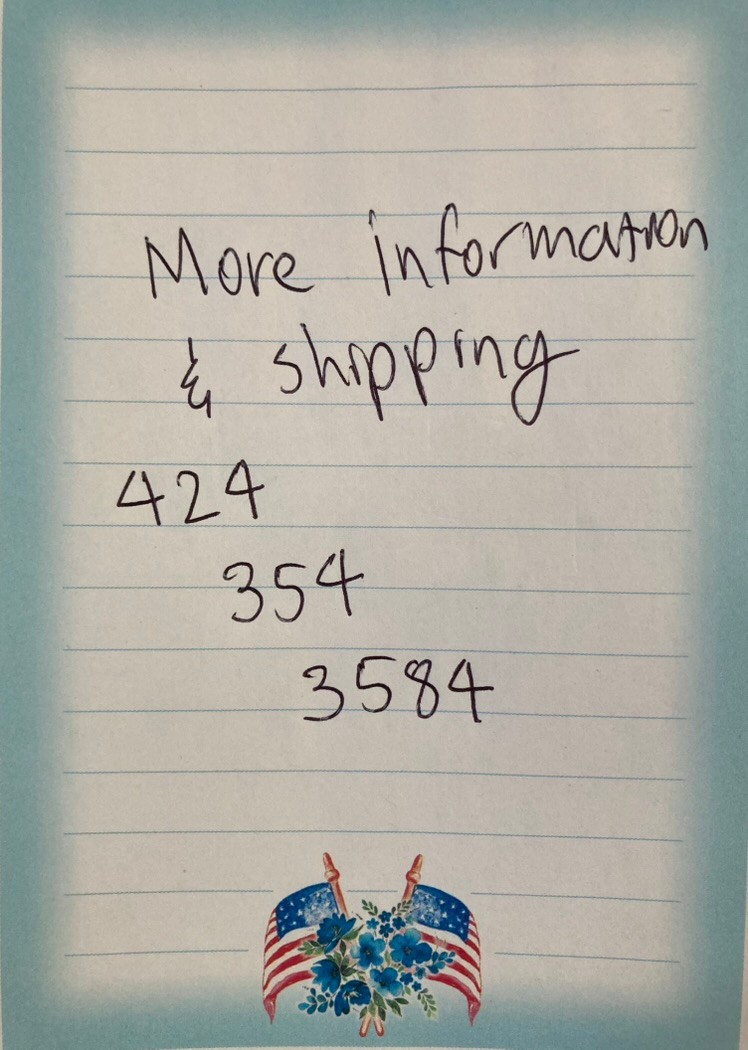 More information
& shipping
424
354
3584